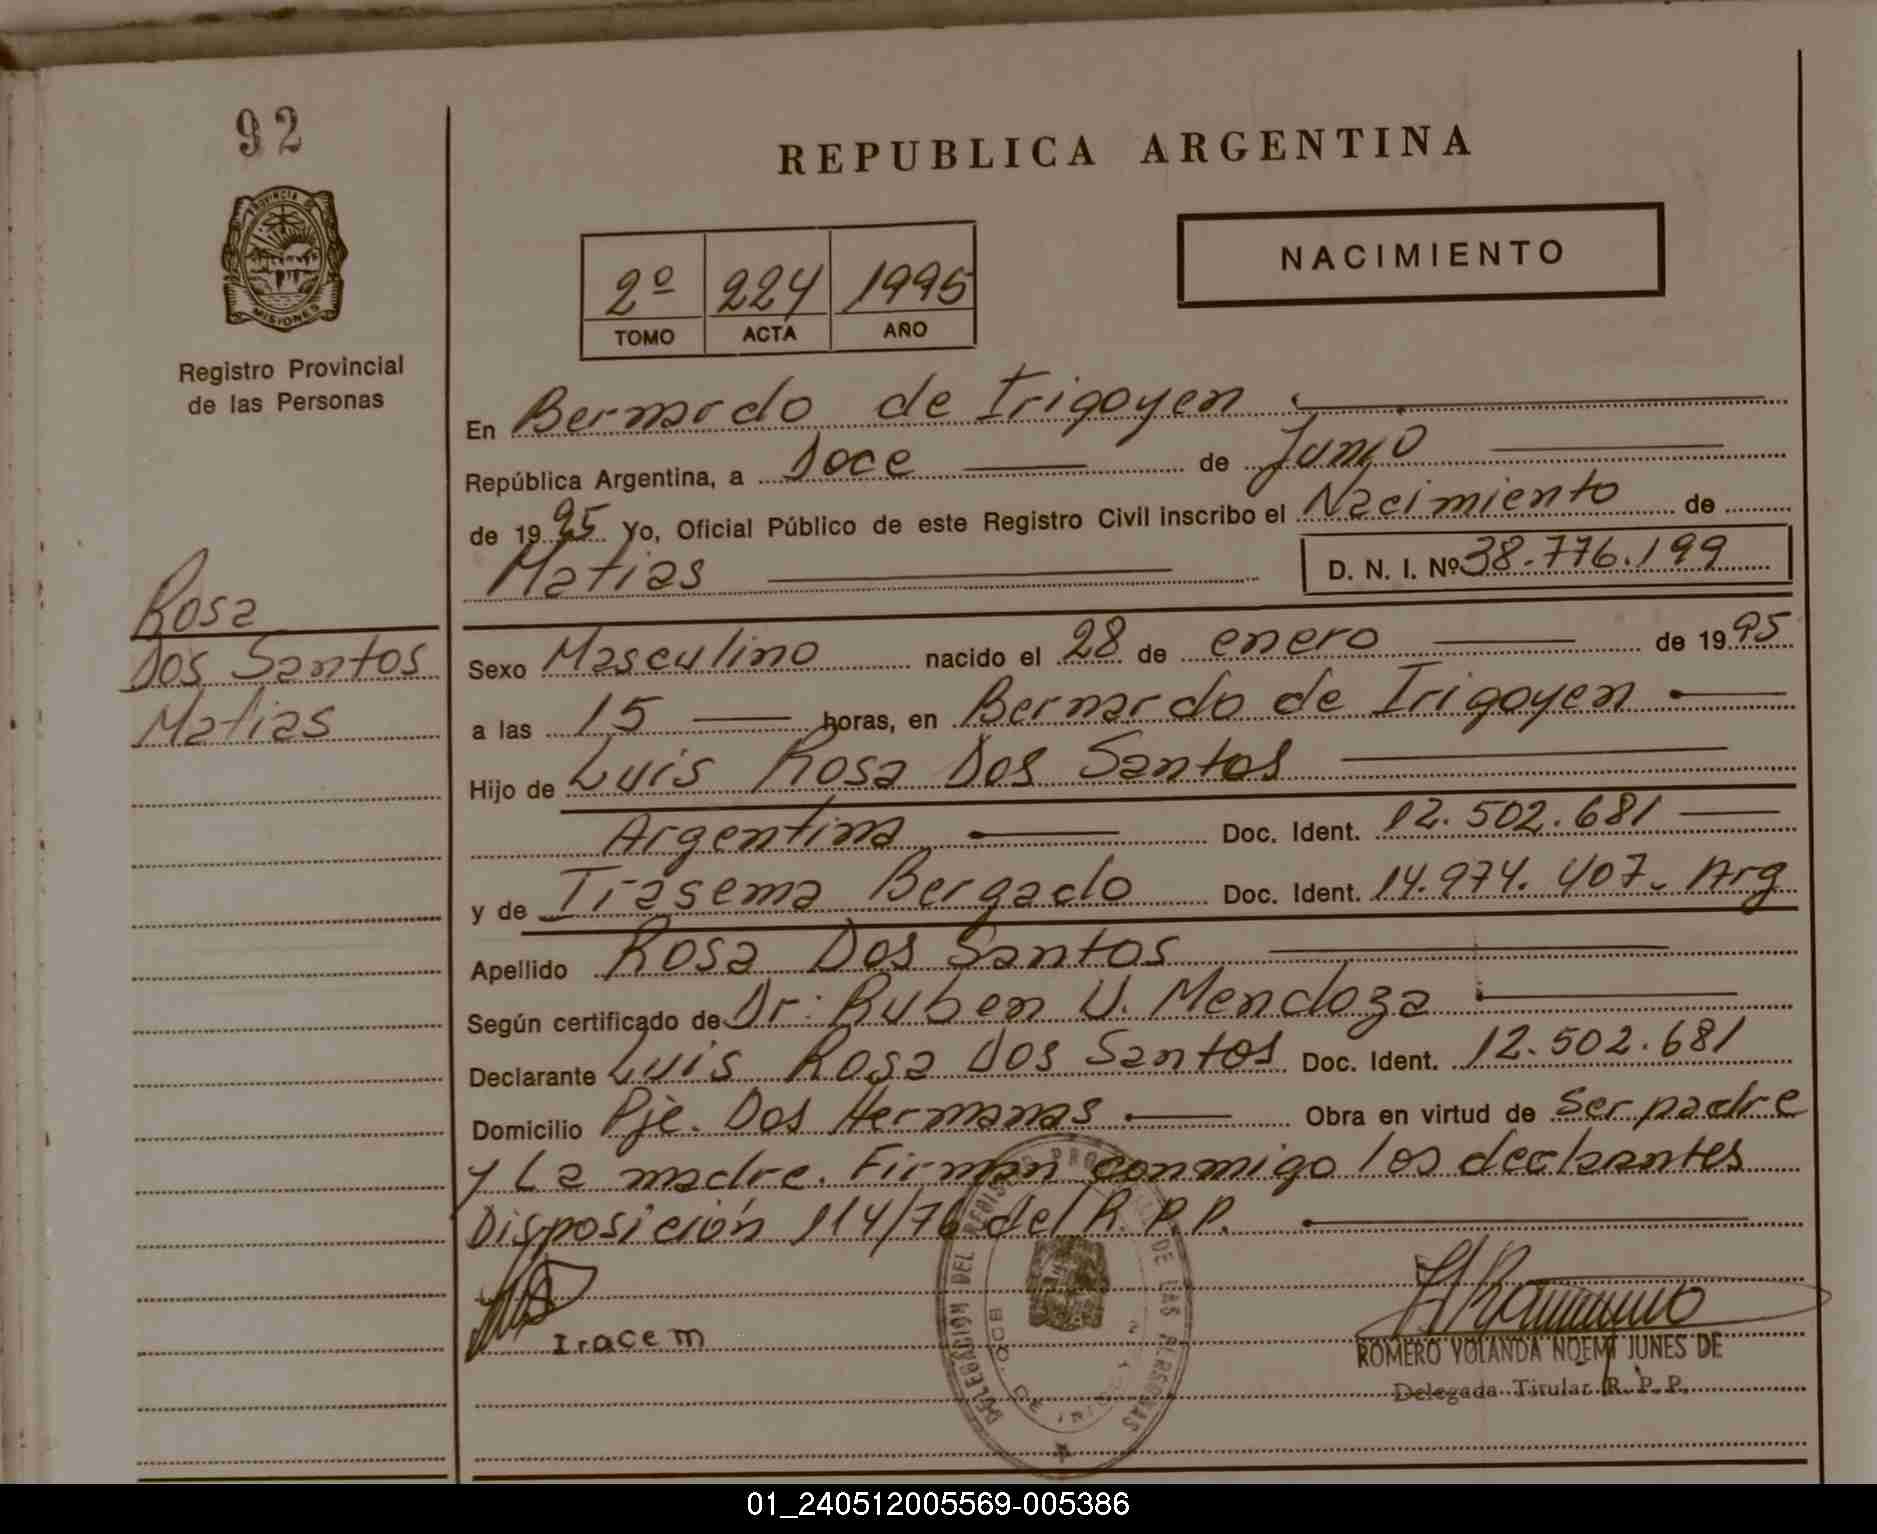 92
REPUBLICA ARGENTINA
PROVINCIA DE
MISIONES
Registro Provincial
de las Personas
2º 224 1995
TOMO ACTA AÑO
NACIMIENTO
En Bernardo de Irigoyen
República Argentina, a Doce de Junio
de 1995 Yo, Oficial Público de este Registro Civil inscribo el Nacimiento de
Matias D. N. I. Nº 38.776.199
Rosa
Dos Santos
Matias
Sexo Masculino nacido el 28 de enero de 1995
a las 15 horas, en Bernardo de Irigoyen
Hijo de Luis Rosa Dos Santos
Argentina Doc. Ident. 12.502.681
y de Irasema Bergado Doc. Ident. 14.974.407. Arg
Apellido Rosa Dos Santos
Según certificado de Dr: Ruben U. Mendoza
Declarante Luis Rosa Dos Santos Doc. Ident. 12.502.681
Domicilio Pje. Dos Hermanas Obra en virtud de ser padre
y La madre. Firman conmigo los declarantes
Disposición 114/76 del R.P.P.
Iracem
DELEGACION DEL REGISTRO PROVINCIAL DE LAS PERSONAS
ROMERO YOLANDA NOEMI JUNES DE
Delegada Titular R. P. P.
01_240512005569-005386